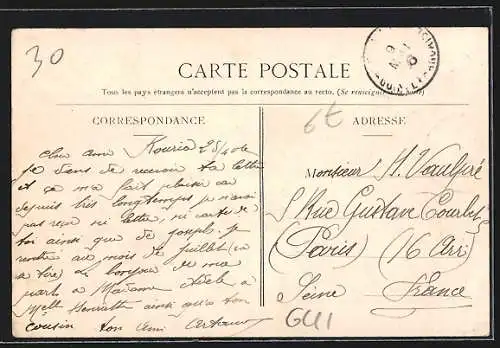 30
CARTE POSTALE
Tous les pays étrangers n'acceptent pas la correspondance au recto. (Se renseigner
CORRESPONDANCE
ADRESSE
6€
cher ami Kouria 25/4 06
je viens de recevoir ta lettre
et ça m'a fait plaisir car
depuis très longtemps je n'avais
pas reçu ni lettre, ni carte de
toi ainsi que de Joseph. je
rentre au mois de Juillet (
a lire) Le bonjour de ma
part à Madame Adèle à
Melle Henriette ainsi qu'a ton
cousin ton ami
Monsieur H.
5 Rue Gustave Courbet
(Paris) (16 Arr)
Seine France
GUI